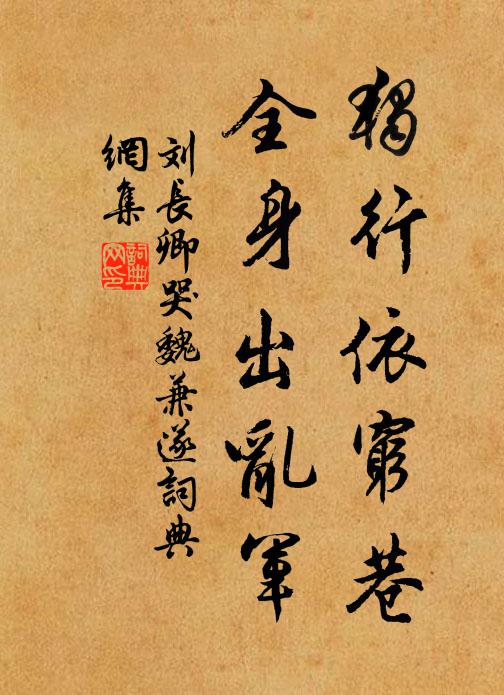 獨行依窮巷
全身出亂軍
刘長卿哭魏兼遂詞典
網集
詞典
网印